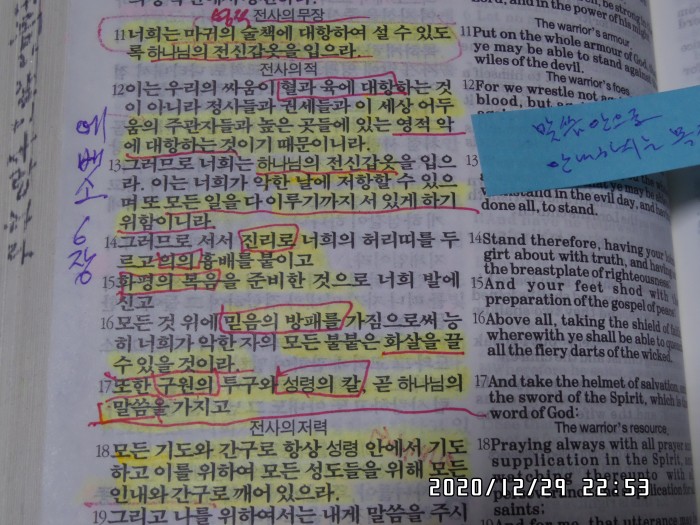 전사의 무장
11 너희는 마귀의 술책에 대항하여 설 수 있도
록 하나님의 전신갑옷을 입으라.
전사의 적
12 이는 우리의 싸움이 혈과 육에 대항하는 것
이 아니라 정사들과 권세들과 이 세상 어두
움의 주관자들과 높은 곳들에 있는 영적 악
에 대항하는 것이기 때문이니라.
13 그러므로 너희는 하나님의 전신갑옷을 입으
라. 이는 너희가 악한 날에 저항할 수 있으
며 또 모든 일을 다 이루기까지 서 있게 하기
위함이니라.
14 그러므로 서서 진리로 너희의 허리띠를 두
르고 의의 흉배를 붙이고
15 화평의 복음을 준비한 것으로 너희 발에
신고
16 모든 것 위에 믿음의 방패를 가짐으로써 능
히 너희가 악한 자의 모든 불붙은 화살을 끌
수 있을 것이라.
17 또한 구원의 투구와 성령의 칼, 곧 하나님의
말씀을 가지고
전사의 저력
18 모든 기도와 간구로 항상 성령 안에서 기도
하고 이를 위하여 모든 성도들을 위해 모든
인내와 간구로 깨어 있으라.
19 그리고 나를 위하여서는 내게 말씀을 주시
에베소 6장
Lord, and in the power of his
The warrior's armour
11 Put on the whole armour of God,
ye may be able to stand against
wiles of the devil.
The warrior's foes
12 For we wrestle not
blood, but
말씀 안으로
13
stand in the evil day, and
done all, to stand.
14 Stand therefore, having your
girt about with truth, and having
the breastplate of righteousness;
15 And your feet shod with
preparation of the gospel of peace
16 Above all, taking the shield of
wherewith ye shall be able to
all the fiery darts of the wicked.
17 And take the helmet of salvation,
the sword of the Spirit, which is
word of God:
The warrior's resource
18 Praying always with all prayer
supplication in the Spirit,
watching thereunto with
saints;
19 And for me, that utterance
2020/12/29 22:53